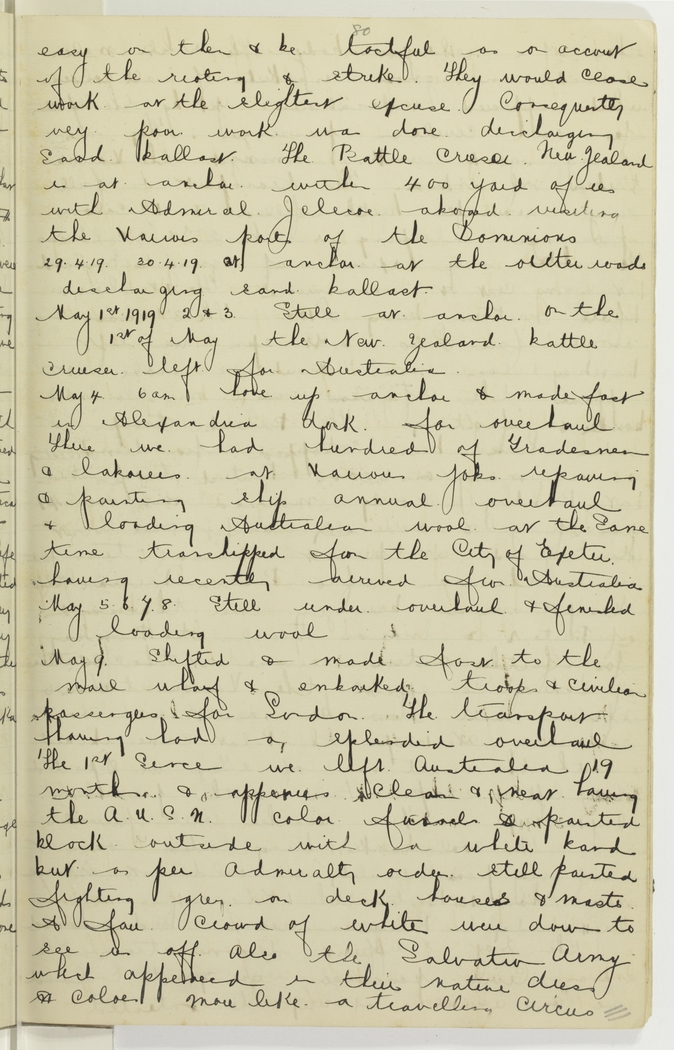 80
easy on them & be tactful as on account
of the rioting & strike. They would cease
work at the slightest excuse. Consequently
very poor work was done discharging
Sand ballast. The Battle Cruiser New Zealand
is at anchor within 400 yard of us
with Admiral Jelicoe aboard visiting
the Various ports of the Dominions
29.4.19. 30.4.19. At anchor at the outter roads
discharging sand ballast.
May 1st 1919 2 & 3. Still at anchor. On the
1st of May the New Zealand battle
cruiser left for Australia.
May 4 6am hove up anchor & made fast
in Alexandria dork. for overhaul
There we had hundred of Tradesmen
& labourers at Various jobs repairing
& painting ship annual overhaul
& loading Australian wool at the Same
time transhipped from the City of Exeter.
having recently arrived from Australia
May 5. 6 7. 8 Still under overhaul & finished
loading wool
May 9. Shifted & made fast to the
mail wharf & embarked troops & civilian
passengers for London. The transport
having had a splendid overhaul
The 1st Since we left Australia 19
months & appears clean & neat having
the A.U.S.N. color funnels & painted
block outside with a white band
but as per Admiralty order still painted
fighting grey on deck houses & masts.
A fair crowd of white were down to
see us off. Also the Salvation Army
which appeared in their native dress
& colors more like a travelling circus